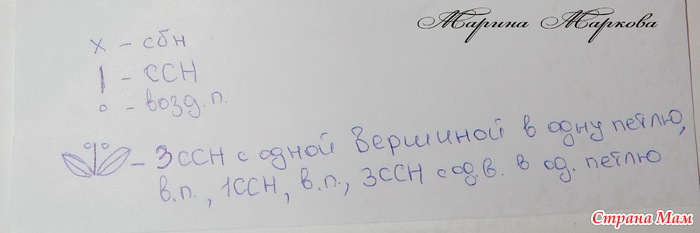 Марина Маркова
х - сбн
| - ССН
о - возд.п.
- 3ССН с одной вершиной в одну петлю,
в.п., 1ССН, в.п., 3ССН с од.в. в од. петлю
Страна Мам